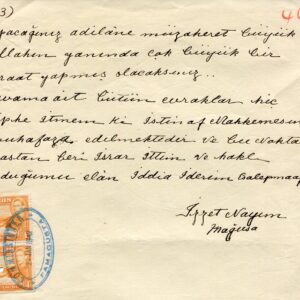 3)
40
pacağınız adilâne müzakeret büyük
Allahın yanında çok büyük bir
raat yapmış olacaksınız..
vama ait bütün evraklar hiç
phe itmem ki İstinaf Mahkemesin
muhafaza edilmektedir ve bu nokta
astan beri Israr ittim ve hakl
duğumu elân İddia iderim
İzzet Nayım
Mağusa
FAMAGUSTA